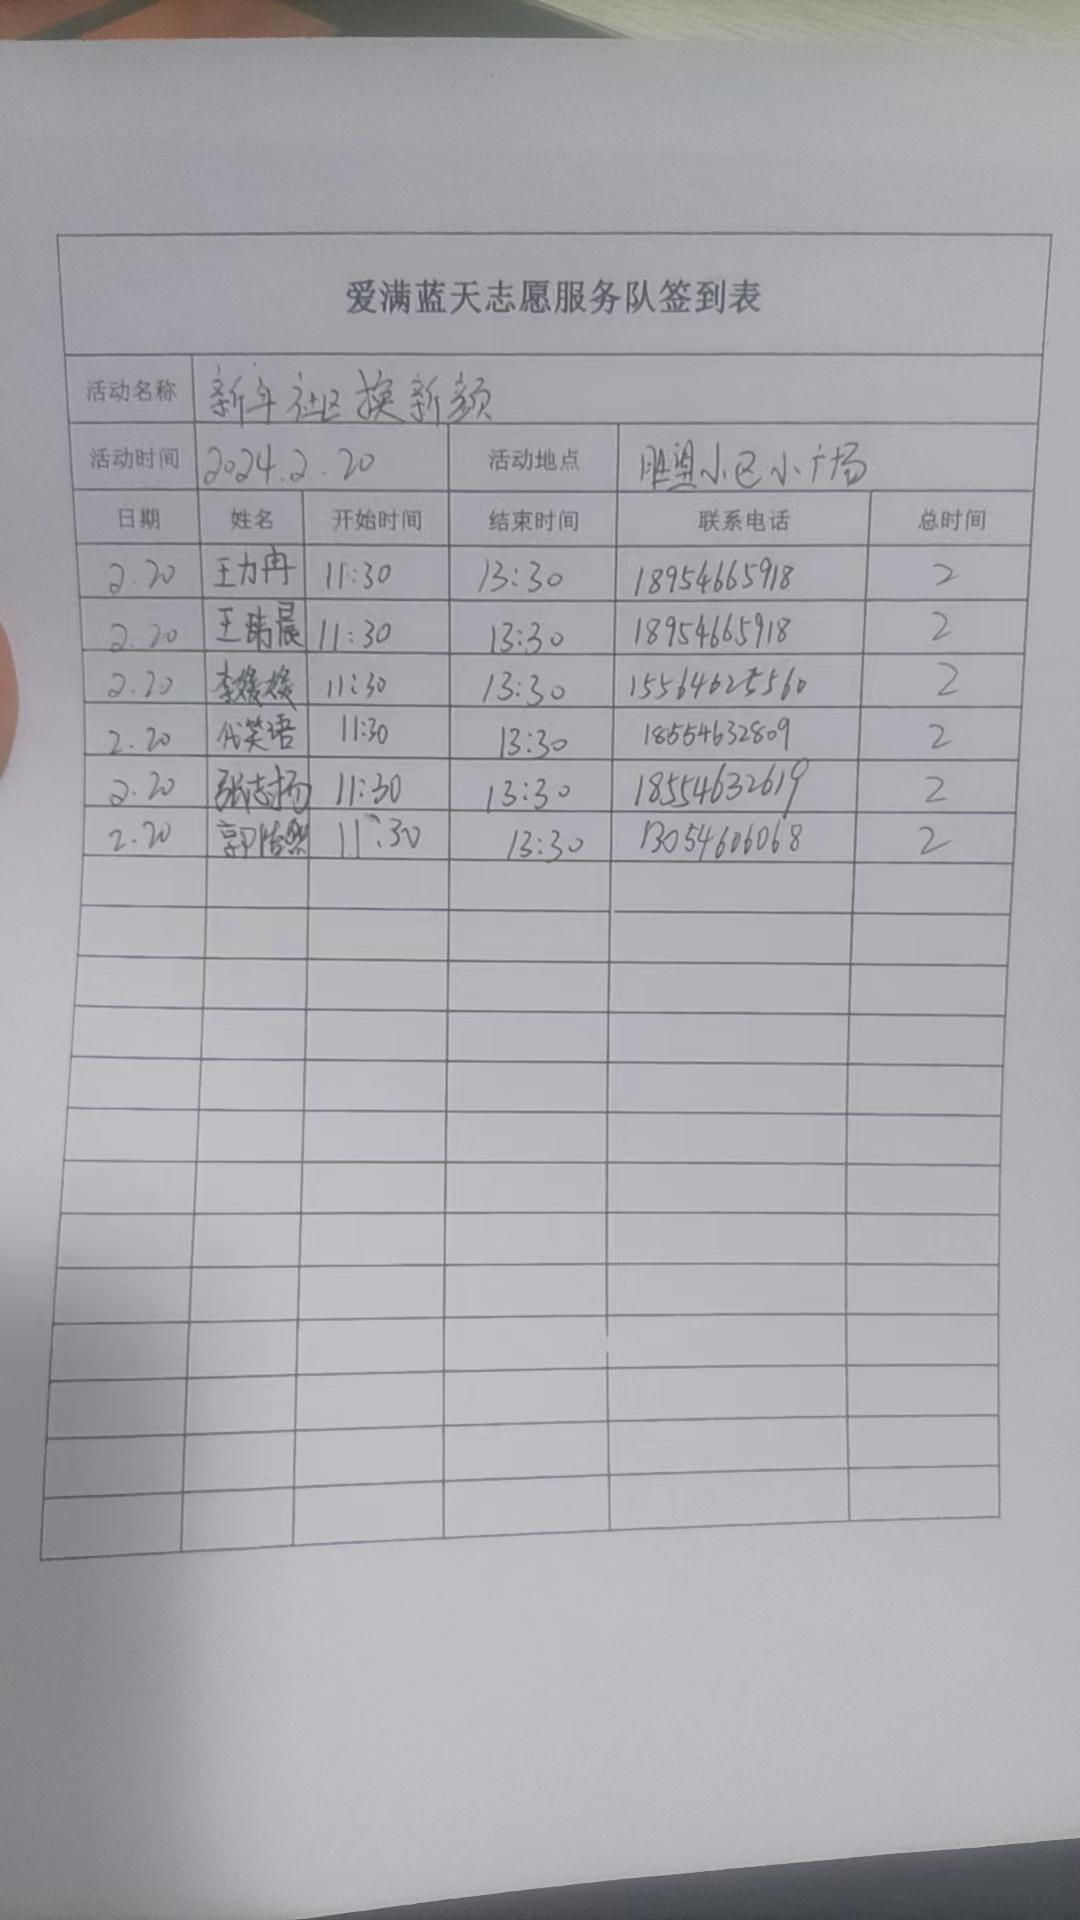 爱满蓝天志愿服务队签到表
活动名称 新年社区换新颜
活动时间 2024.2.20 活动地点 胜盟小区小广场
日期 姓名 开始时间 结束时间 联系电话 总时间
2.20 王力冉 11:30 13:30 18954665918 2
2.20 王玮晨 11:30 13:30 18954665918 2
2.20 李媛媛 11:30 13:30 15564625560 2
2.20 代笑语 11:30 13:30 18554632809 2
2.20 张志扬 11:30 13:30 18554632619 2
2.20 郭 11:30 13:30 13054606068 2